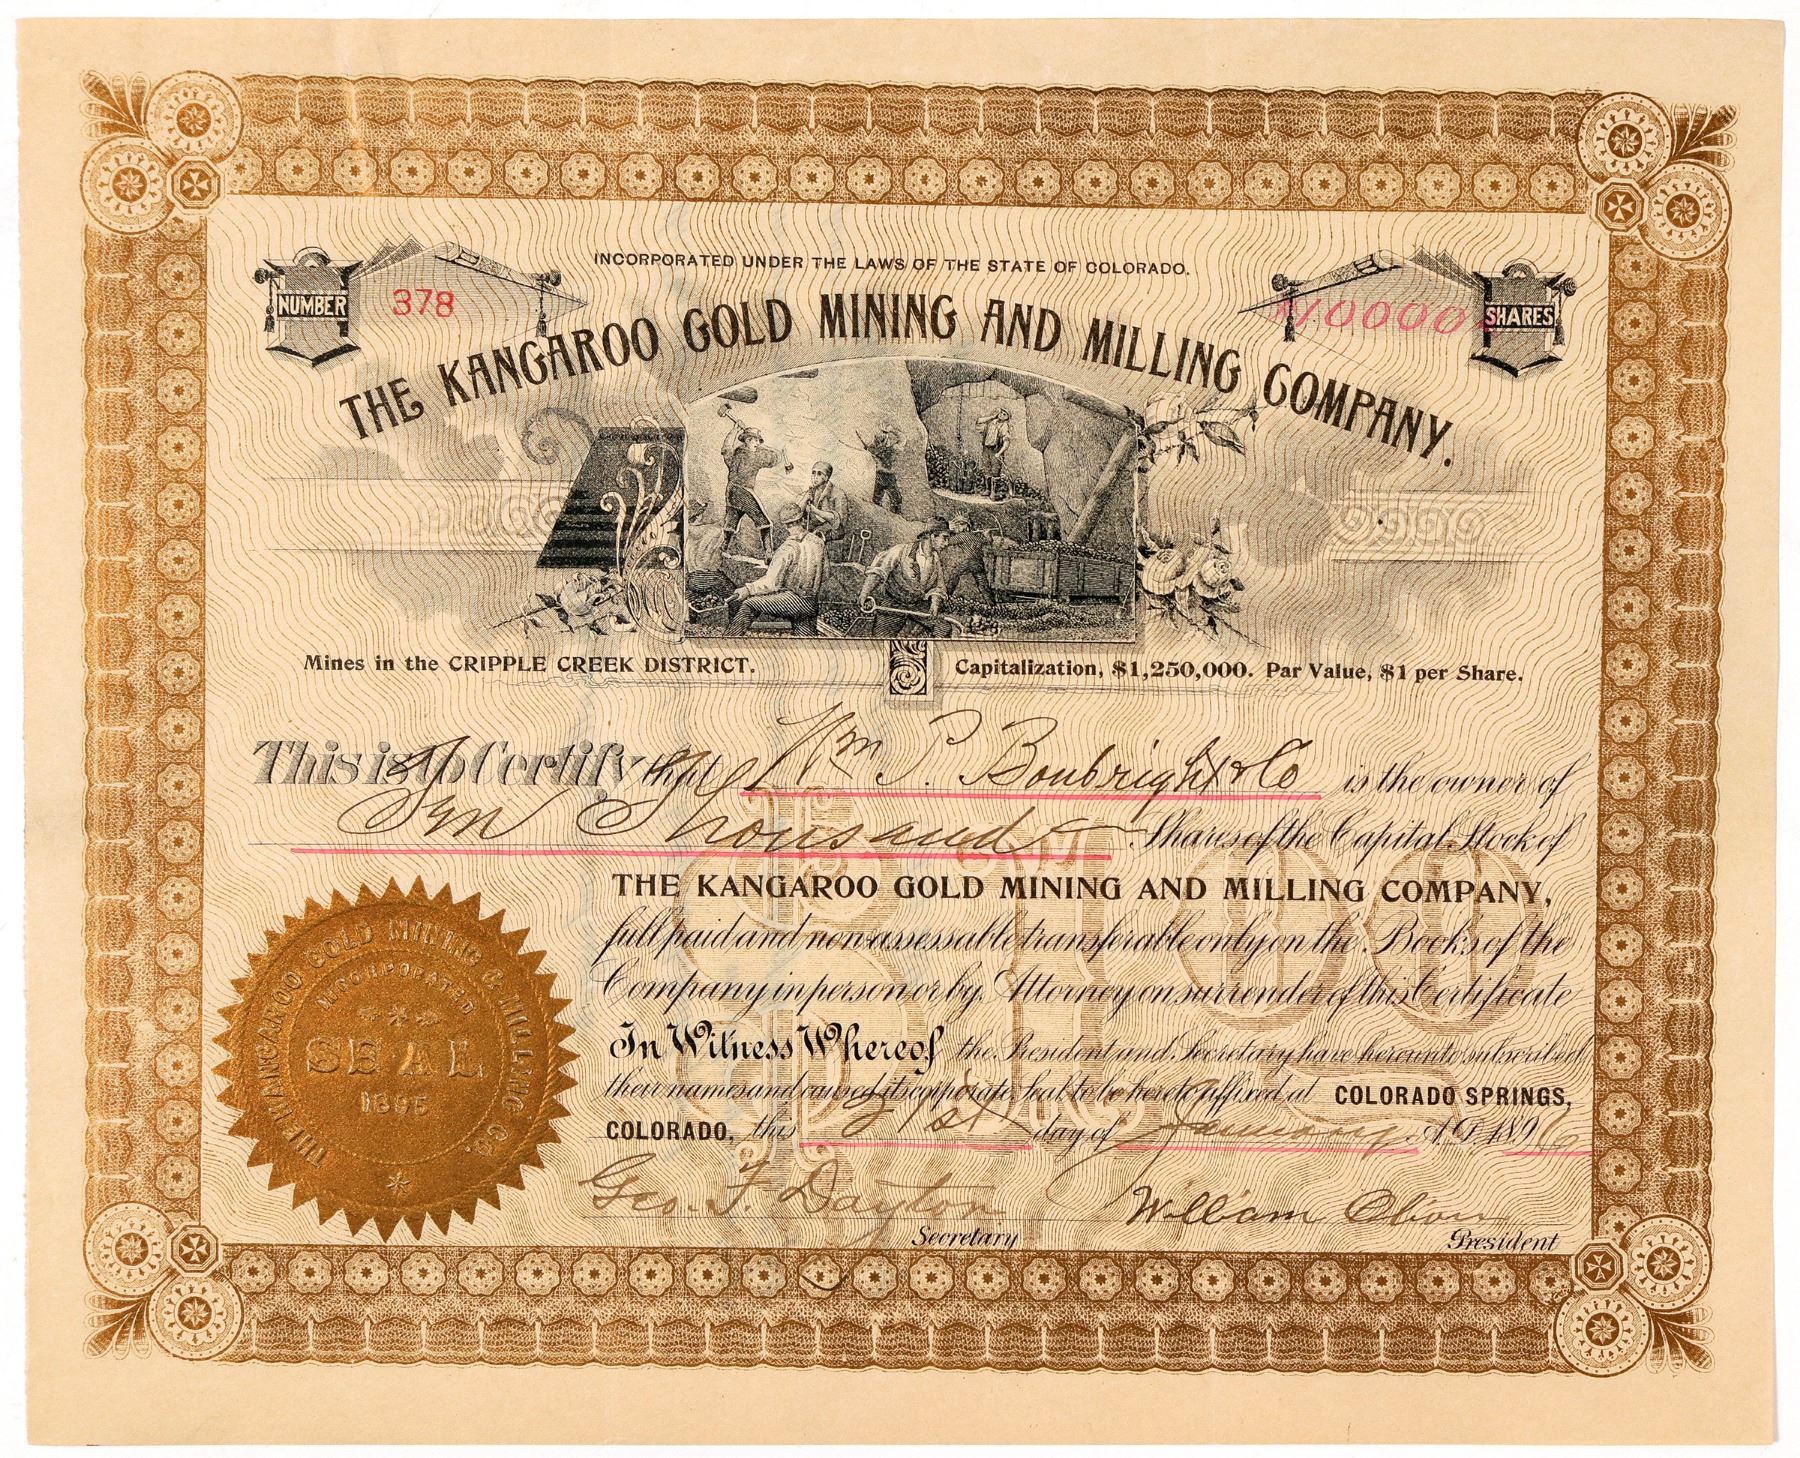 INCORPORATED UNDER THE LAWS OF THE STATE OF COLORADO.
NUMBER 378
10000 SHARES
THE KANGAROO GOLD MINING AND MILLING COMPANY.
Mines in the CRIPPLE CREEK DISTRICT.
Capitalization, $1,250,000. Par Value, $1 per Share.
This is to Certify that Wm P. Bonbright & Co is the owner of
Ten Thousand Shares of the Capital Stock of
THE KANGAROO GOLD MINING AND MILLING COMPANY,
full paid and non-assessable transferable only on the Books of the
Company in person or by Attorney on surrender of this Certificate
In Witness Whereof the President and Secretary have hereunto subscribed
their names and caused its corporate Seal to be hereto affixed at COLORADO SPRINGS,
COLORADO, this 21st day of January A.D. 1896
Geo. F. Dayton
Secretary
William
President
THE KANGAROO GOLD MINING & MILLING CO.
INCORPORATED
SEAL
1895
$1.00